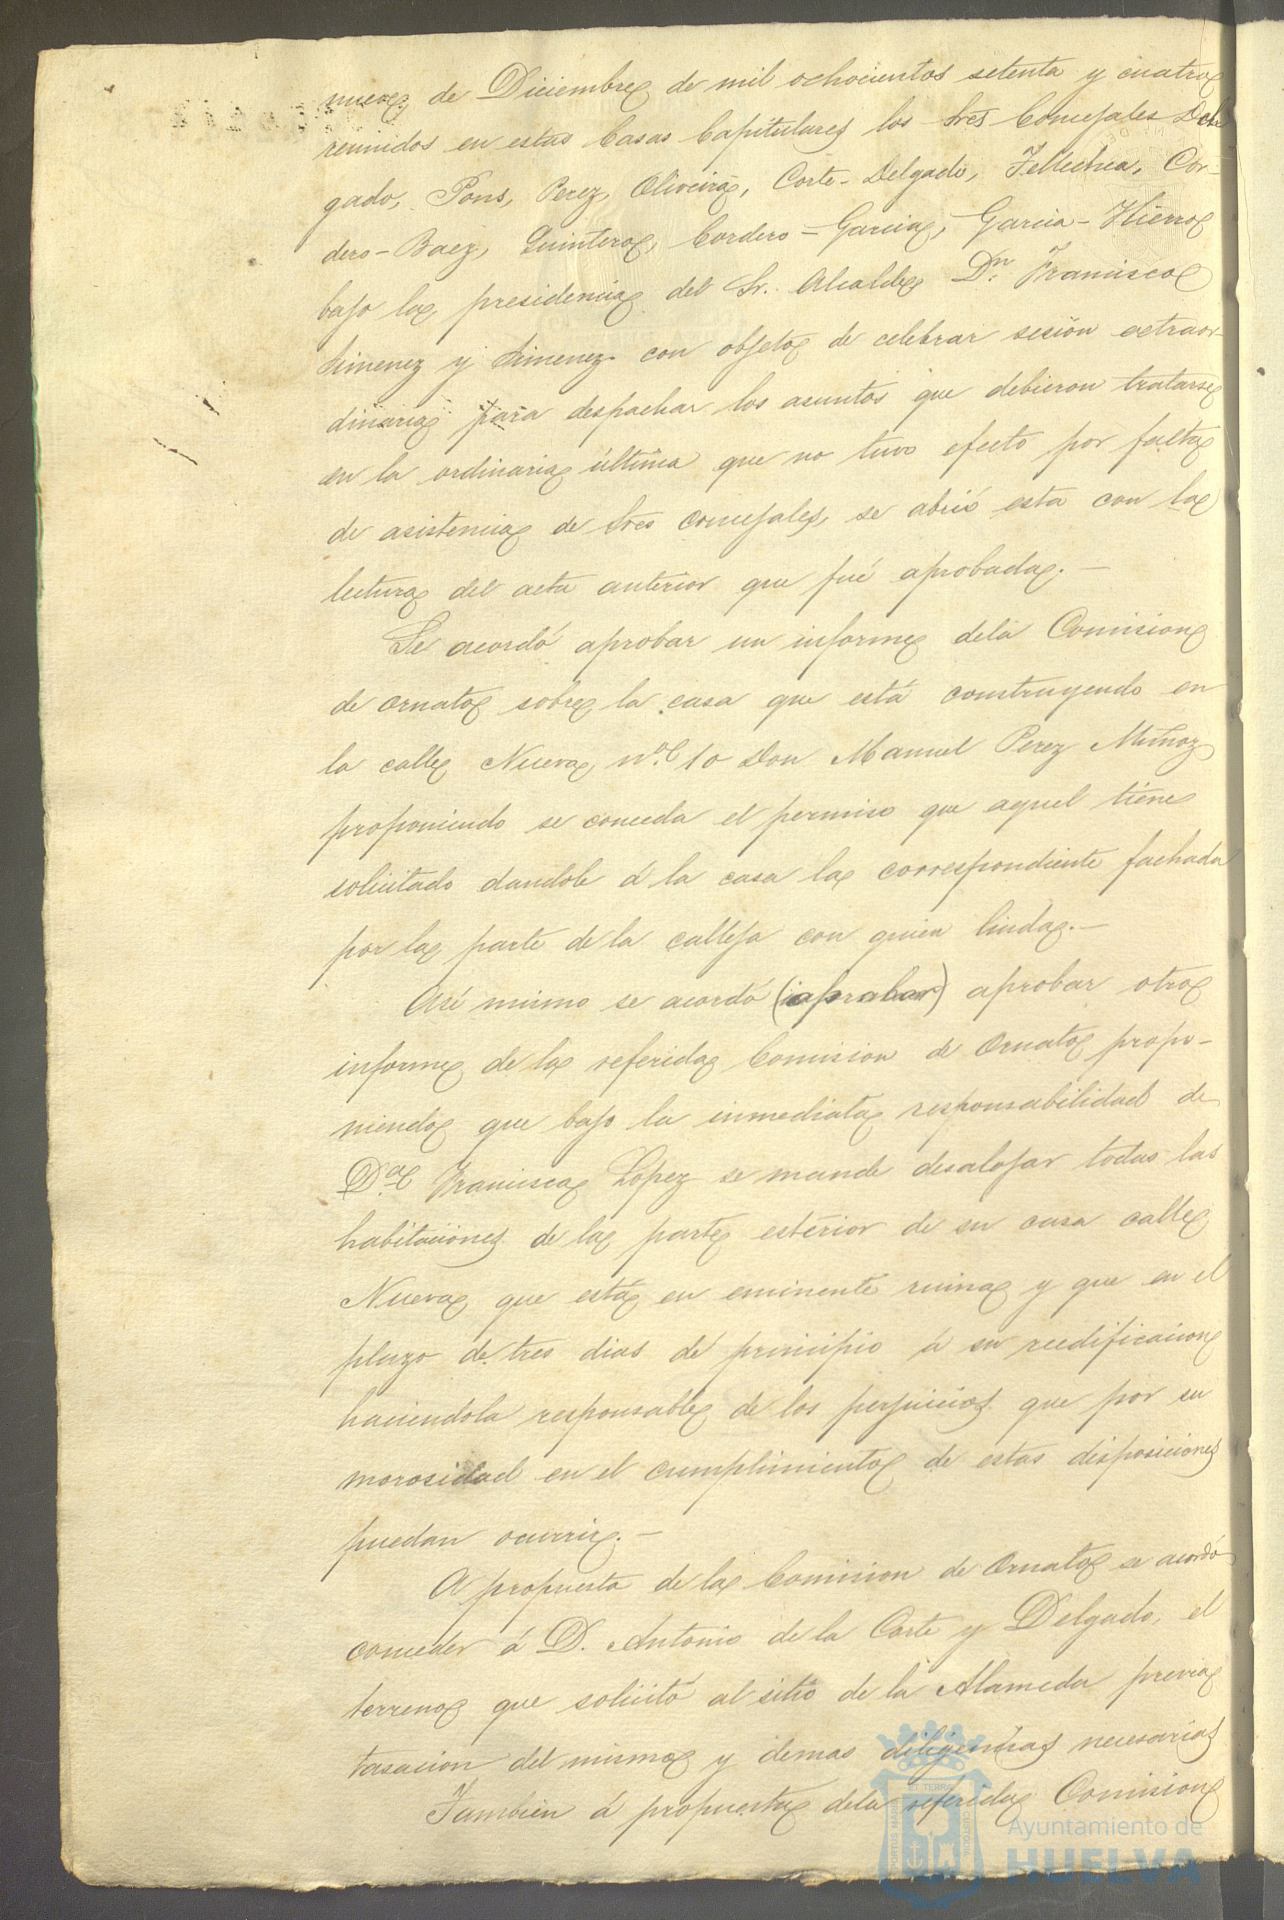 nueve de Diciembre de mil ochocientos setenta y cuatro
reunidos en estas Casas Capitulares los Sres Concejales Del-
gado, Pons, Perez, Oliveira, Corte-Delgado, Tellechea, Cor-
dero-Baez, Quintero, Cordero=Garcia, Garcia-Hierro
bajo la presidencia del Sr. Alcalde Dn. Francisco
Jimenez y Jimenez con objeto de celebrar sesión extraor-
dinaria para despachar los asuntos que debieron tratarse
en la ordinaria última que no tuvo efecto por falta
de asistencia de Sres concejales, se abrió esta con la
lectura del acta anterior que fué aprobada.—
Se acordó aprobar un informe dela Comision
de ornato sobre la casa que está construyendo en
la calle Nueva nº 10 Don Manuel Perez Muñoz
proponiendo se conceda el permiso que aquel tiene
solicitado dandole á la casa la correspondiente fachada
por la parte de la calleja con quien linda.—
Así mismo se acordó (aprobar) aprobar otro
informe de la referida Comision de Ornato propo-
niendo que bajo la inmediata responsabilidad de
D.ª Francisca López se mande desalojar todas las
habitaciones de la parte esterior de su casa calle
Nueva que está en eminente ruina y que en el
plazo de tres dias dé principio á su reedificacion
haciendola responsable de los perjuicios que por su
morosidad en el cumplimiento de estas disposiciones
puedan ocurrir.—
A propuesta de la Comision de Ornato se acordó
conceder á D. Antonio de la Corte y Delgado, el
terreno que solicitó al sitio de la Alameda previa
tasacion del mismo y demas diligencias necesarias
Tambien á propuesta dela referida Comision
PORTUS MARIS ET TERRAE CUSTODIA
Ayuntamiento de
HUELVA